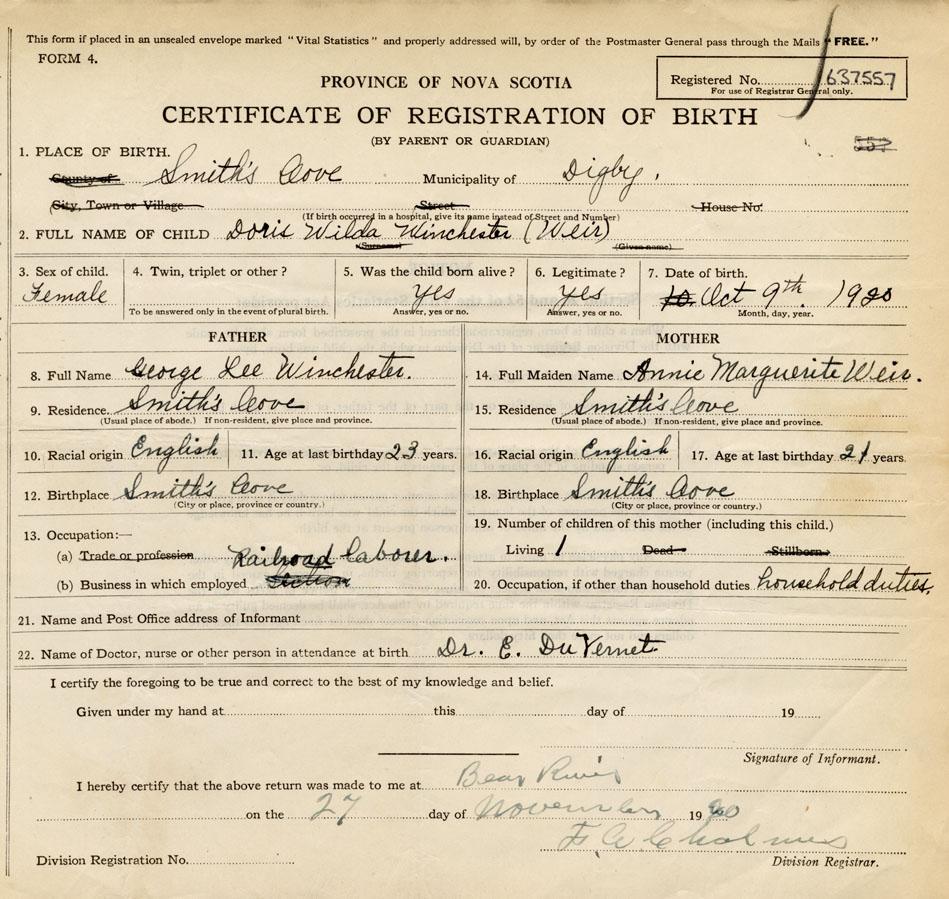 This form if placed in an unsealed envelope marked "Vital Statistics" and properly addressed will, by order of the Postmaster General pass through the Mails "FREE."
FORM 4.
PROVINCE OF NOVA SCOTIA
Registered No. 637557
For use of Registrar General only.
CERTIFICATE OF REGISTRATION OF BIRTH
(BY PARENT OR GUARDIAN)
557
1. PLACE OF BIRTH.
County of Smith's Cove Municipality of Digby.
(City, Town or Village Street House No.
(If birth occurred in a hospital, give its name instead of Street and Number)
2. FULL NAME OF CHILD Doris Wilda Winchester (Weir)
(Surname) (Given name)
3. Sex of child. 4. Twin, triplet or other? 5. Was the child born alive? 6. Legitimate? 7. Date of birth.
Female yes yes Oct 9th. 1920
To be answered only in the event of plural birth. Answer, yes or no. Answer, yes or no. Month, day, year.
FATHER
8. Full Name George Lee Winchester.
9. Residence. Smith's Cove
(Usual place of abode.) If non-resident, give place and province.
10. Racial origin English 11. Age at last birthday 23 years.
12. Birthplace Smith's Cove
(City or place, province or country.)
13. Occupation:—
(a) Trade or profession Railroad laborer.
(b) Business in which employed
MOTHER
14. Full Maiden Name Annie Marguerite Weir.
15. Residence Smith's Cove
(Usual place of abode.) If non-resident, give place and province.
16. Racial origin English 17. Age at last birthday 21 years.
18. Birthplace Smith's Cove
(City or place, province or country.)
19. Number of children of this mother (including this child.)
Living 1 Dead Stillborn
20. Occupation, if other than household duties household duties.
21. Name and Post Office address of Informant
22. Name of Doctor, nurse or other person in attendance at birth Dr. E. DuVernet
I certify the foregoing to be true and correct to the best of my knowledge and belief.
Given under my hand at this day of 19
Signature of Informant.
I hereby certify that the above return was made to me at Bear River
on the 27 day of November 1920
Division Registration No.
Division Registrar.